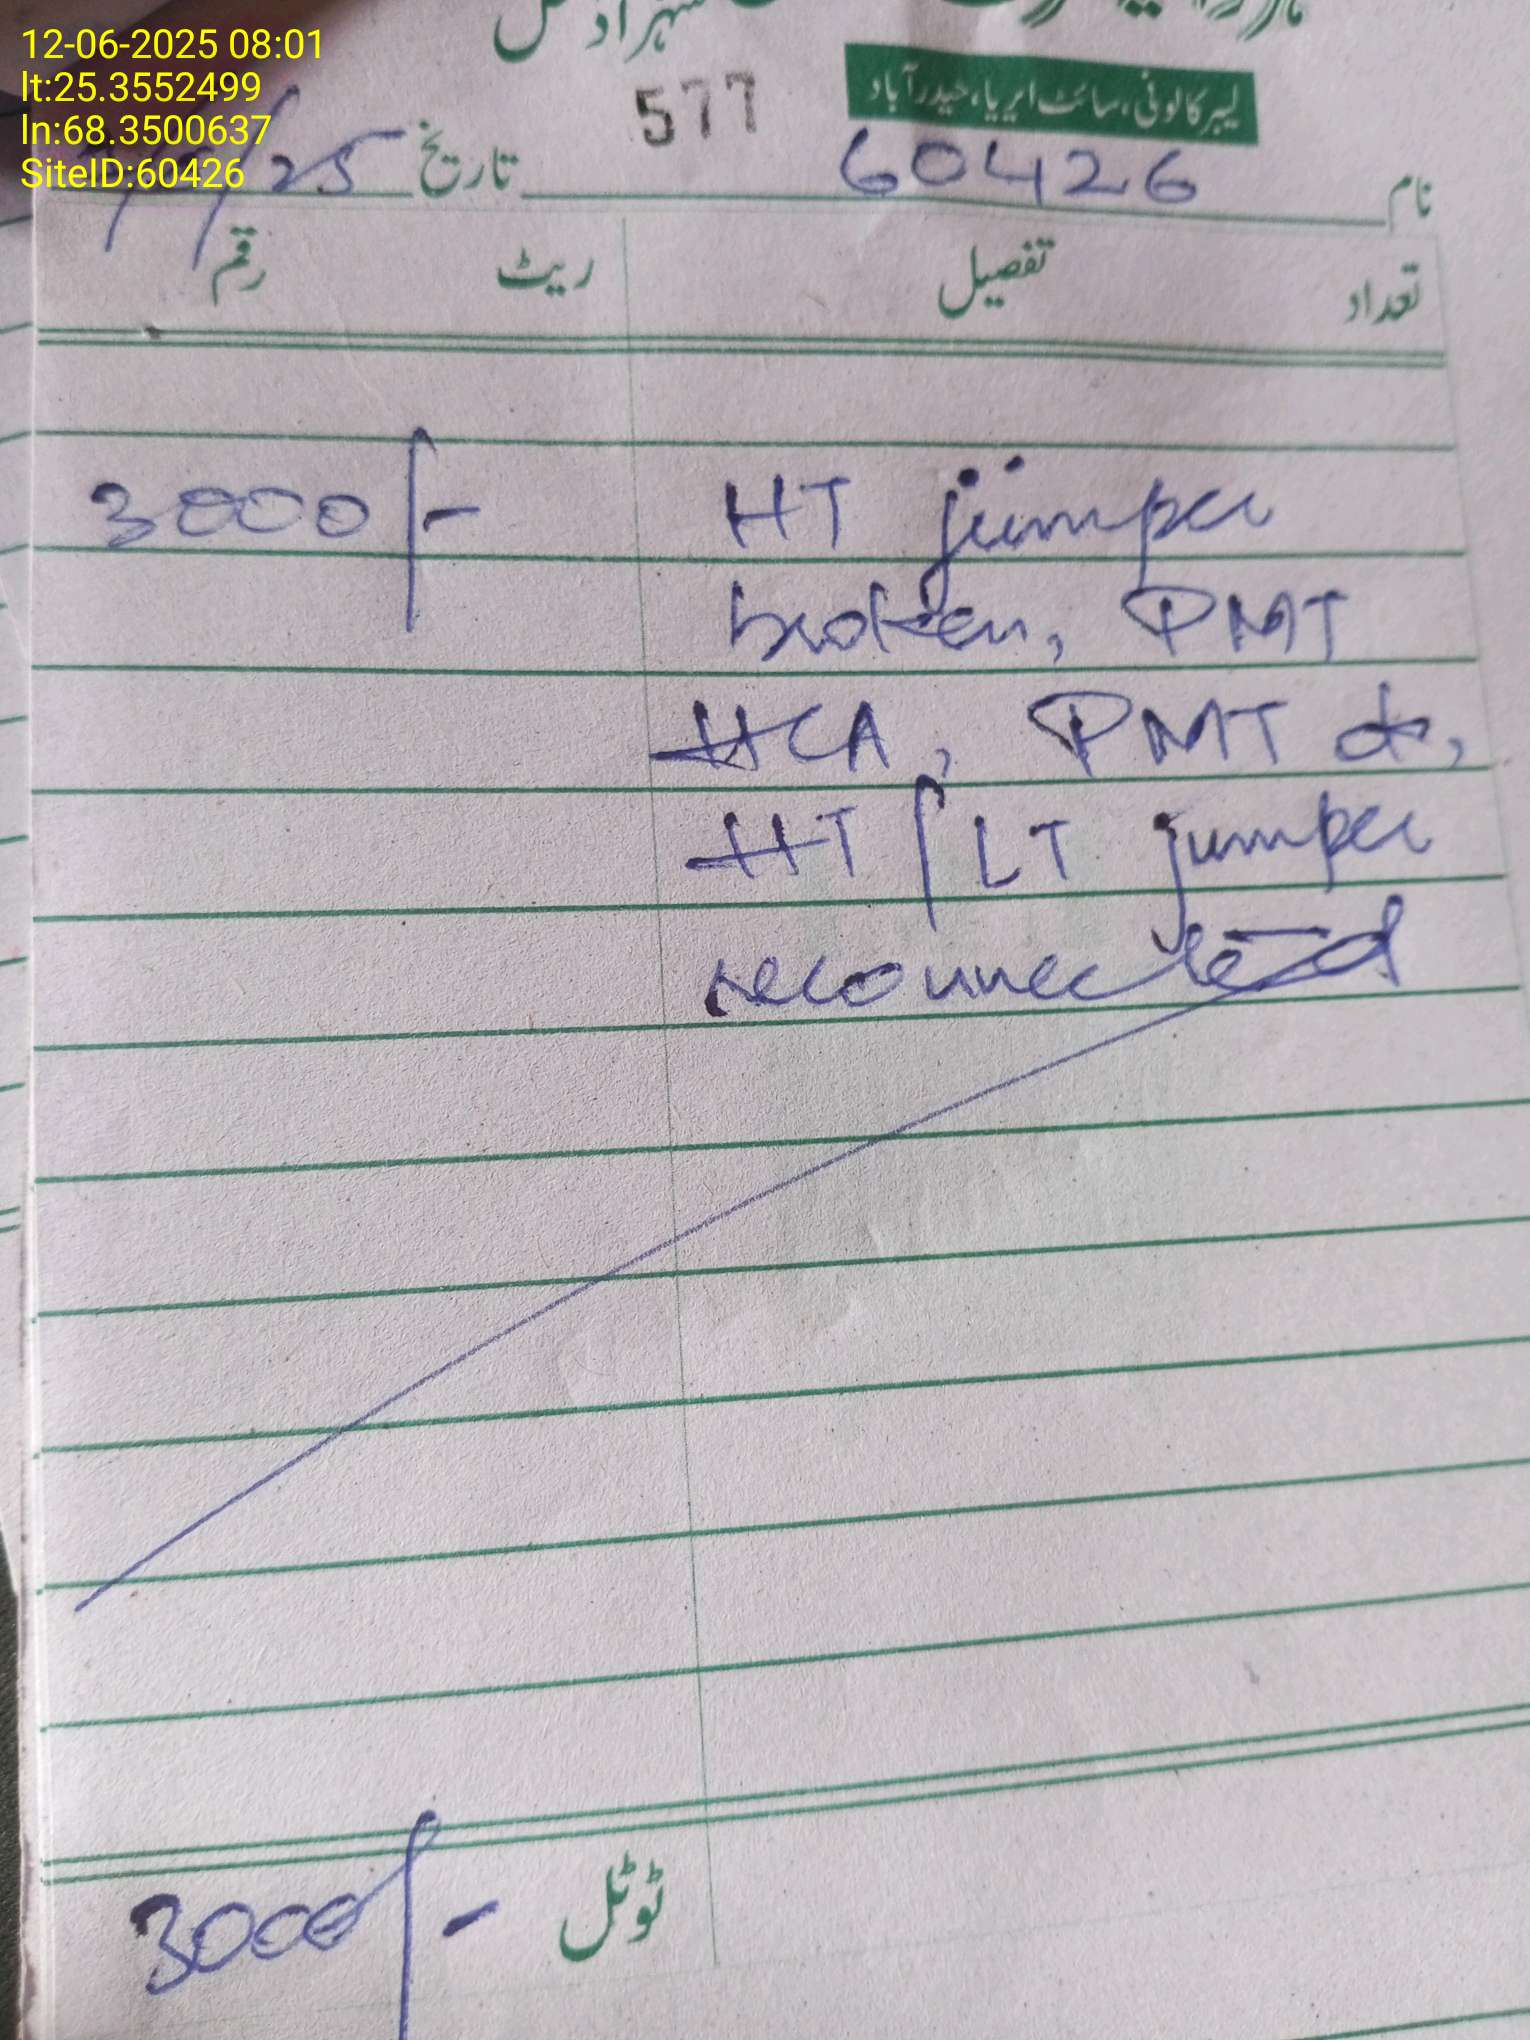 12-06-2025 08:01
lt:25.3552499
ln:68.3500637
SiteID:60426
577
لیبر کالونی، سائٹ ایریا، حیدرآباد
نام 60426 تاریخ 25
تعداد تفصیل ریٹ رقم
HT jumper 3000/-
broken, PMT
HCA, PMT &,
HT/LT jumper
reconnected
ٹوٹل 3000/-